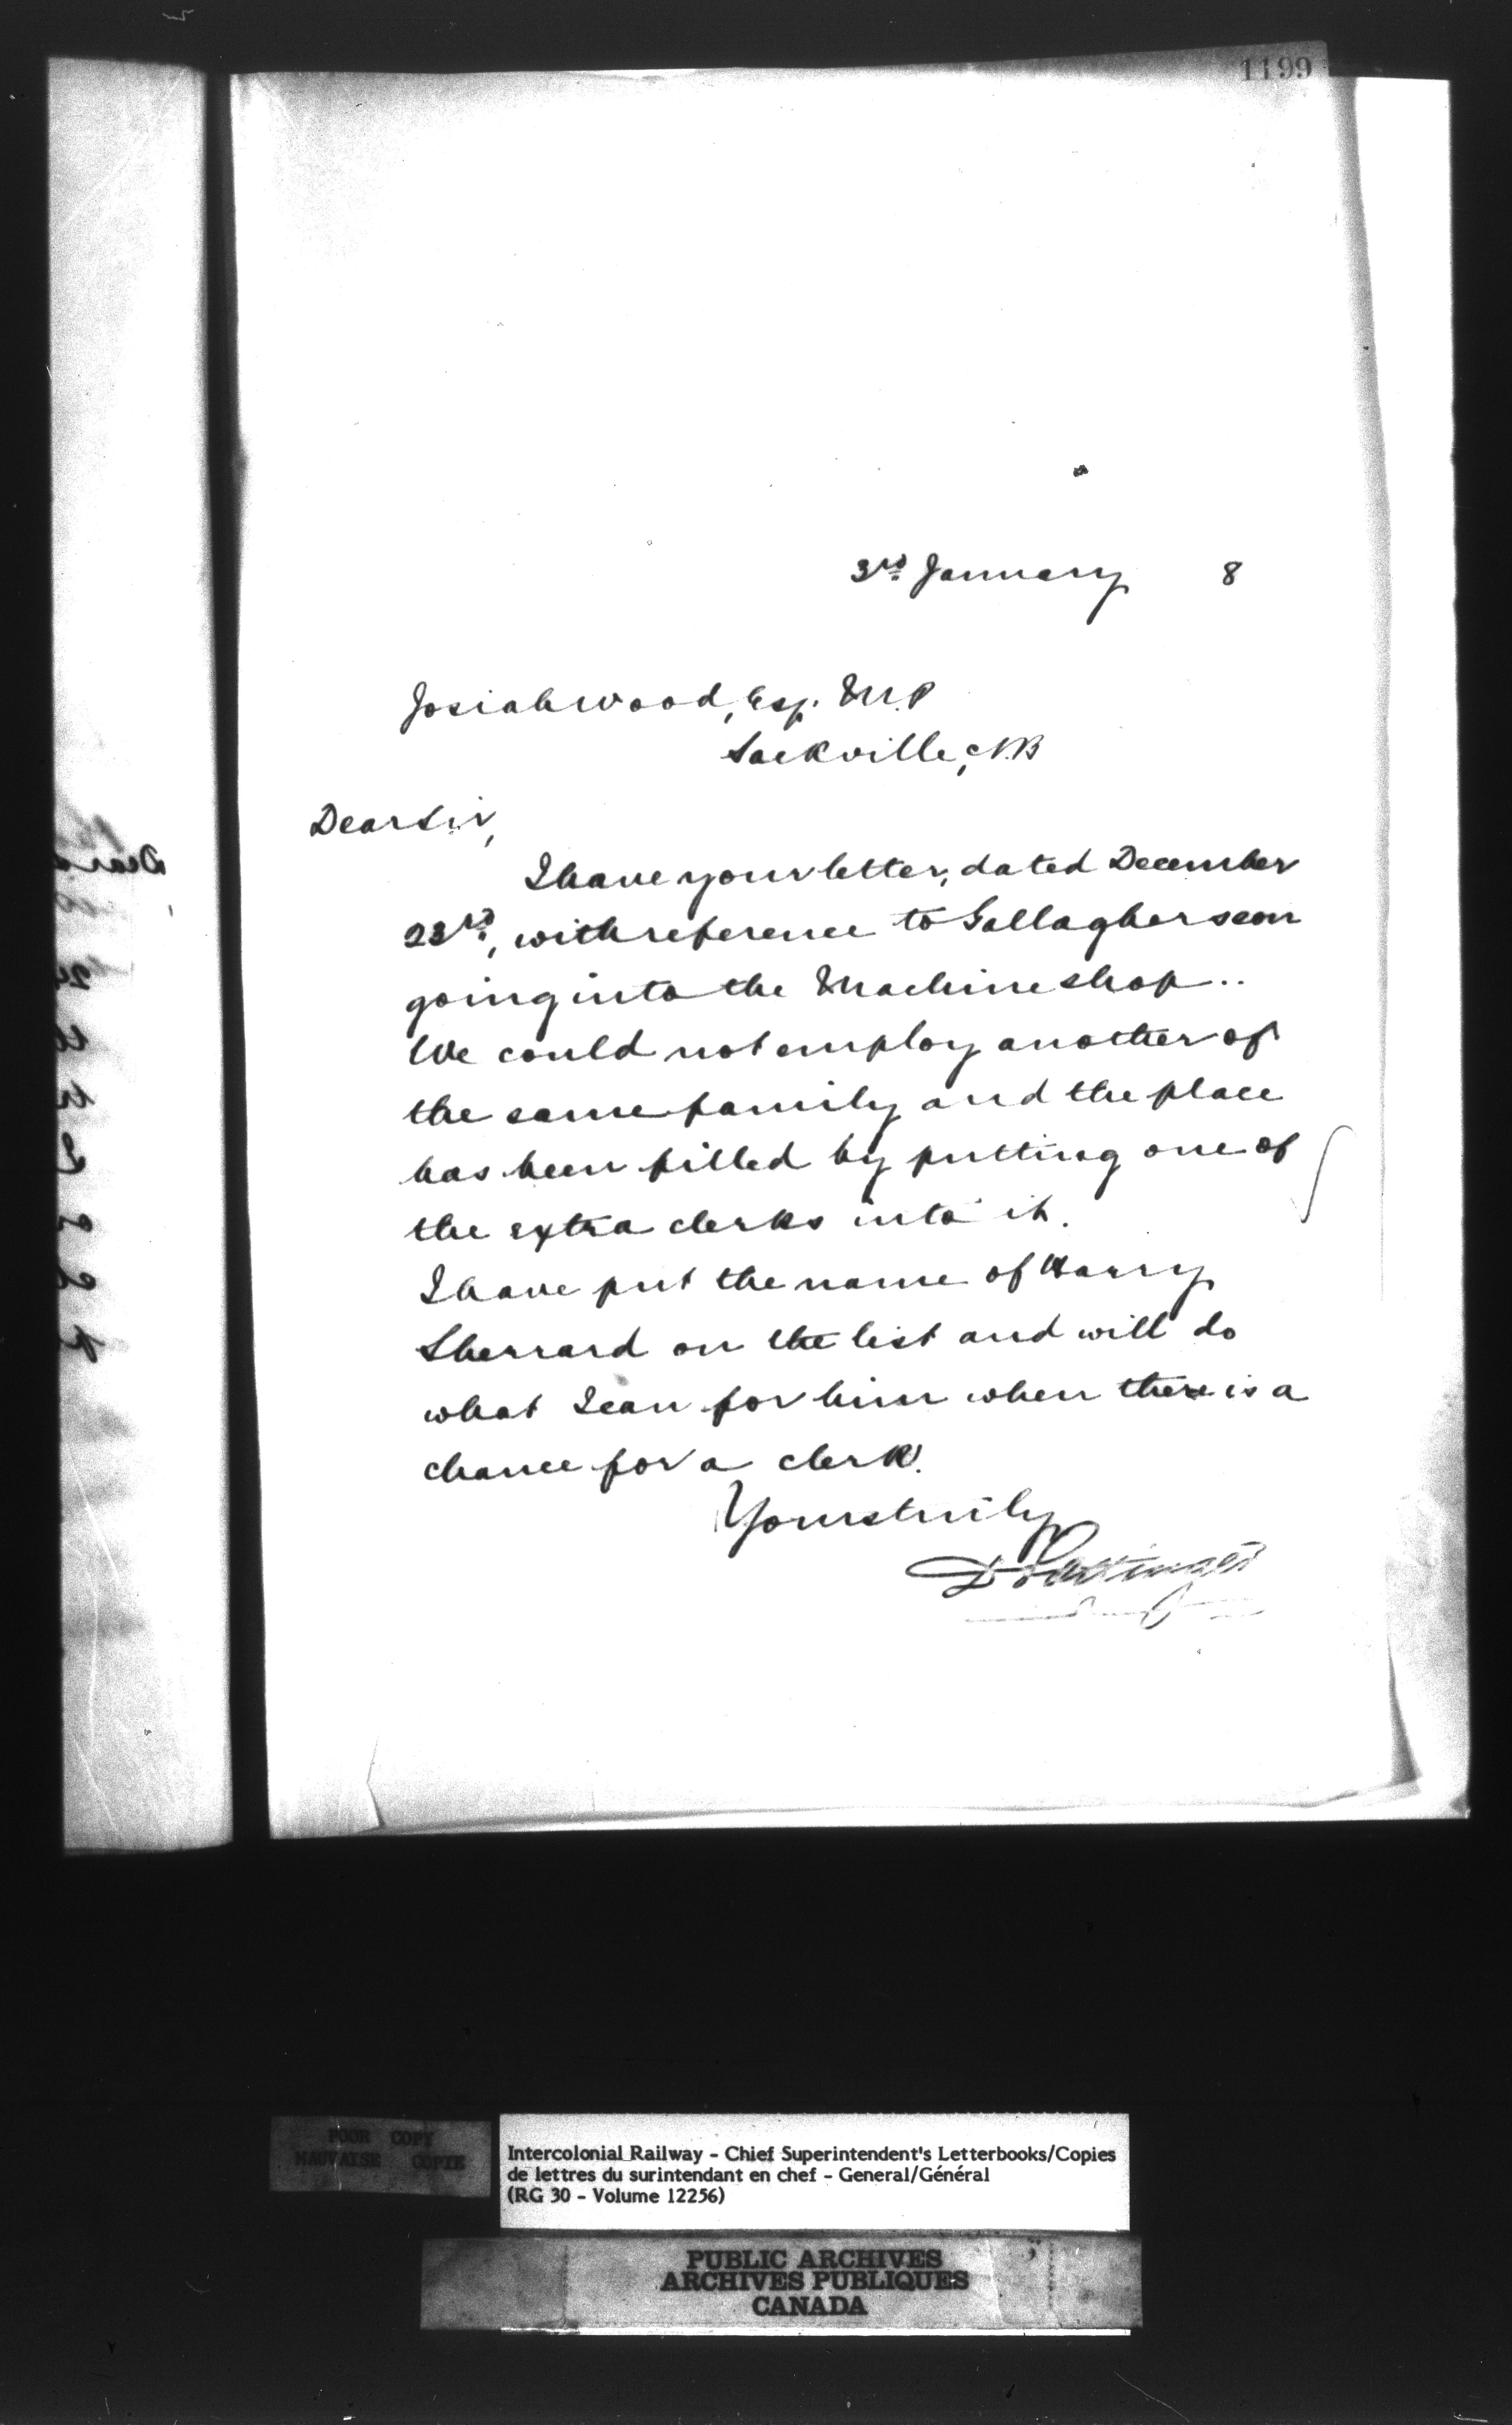 1199
3rd January 8
Josiah Wood, Esq. M.P
Sackville, N.B
Dear Sir,
I have your letter, dated December
23rd, with reference to Gallagher's son
going into the Machine shop..
We could not employ another of
the same family and the place
has been filled by putting one of
the extra clerks into it.
I have put the name of Harry
Sherrard on the list and will do
what I can for him when there is a
chance for a clerk.
Yours truly
D Pottinger
POOR COPY
MAUVAISE COPIE
Intercolonial Railway - Chief Superintendent's Letterbooks/Copies
de lettres du surintendant en chef - General/Général
(RG 30 - Volume 12256)
PUBLIC ARCHIVES
ARCHIVES PUBLIQUES
CANADA